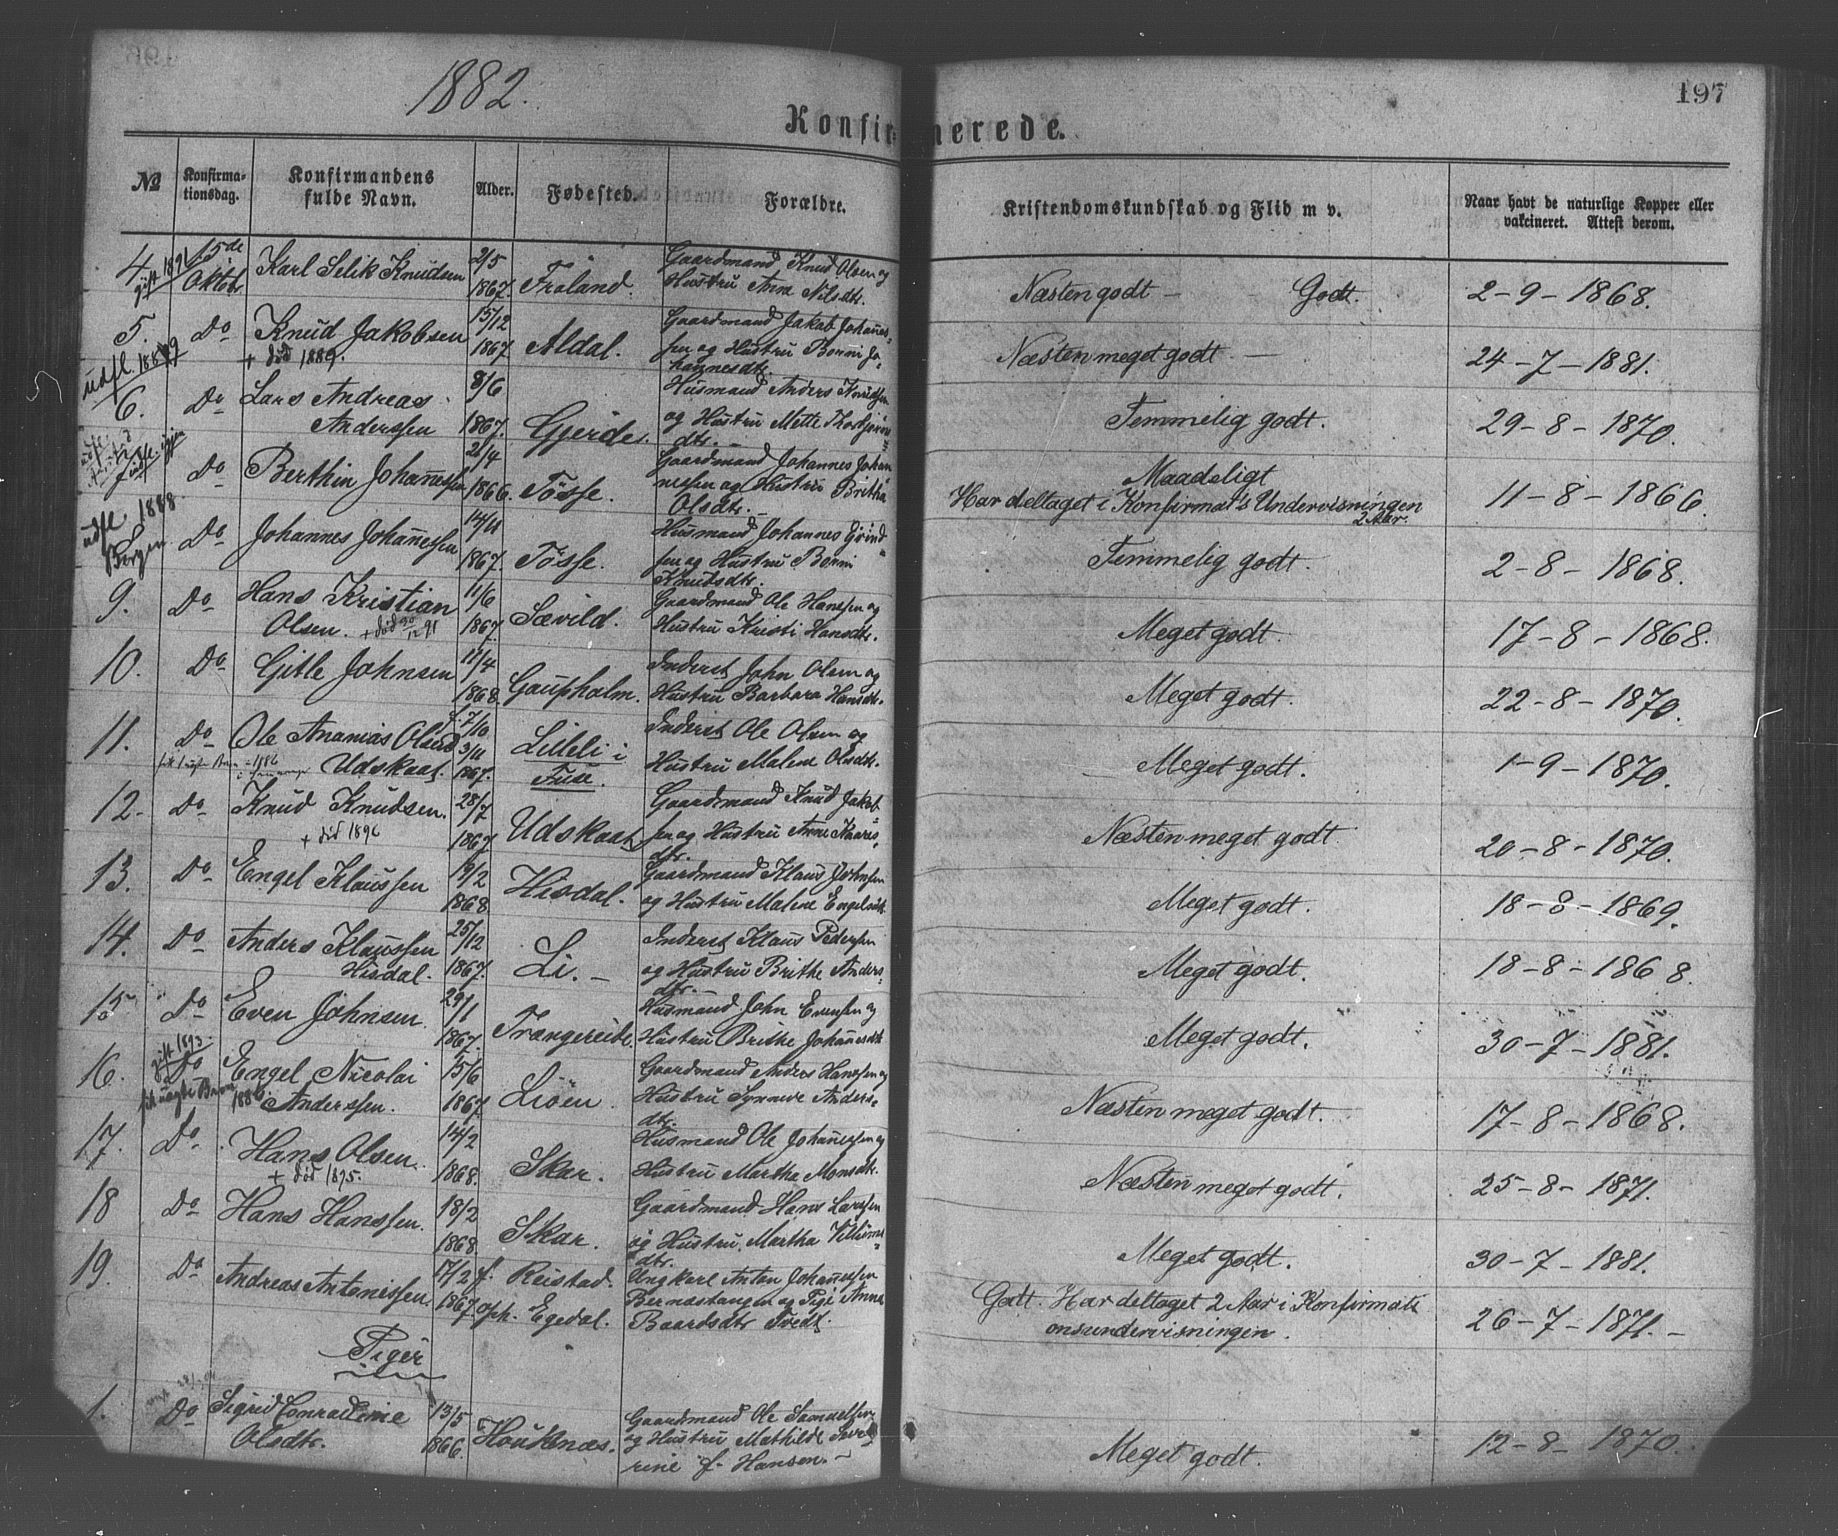 1882.
197
Konfir- merede.
No
Konfirma-
tionsdag.
Konfirmandens
fulde Navn.
Alder.
Fødested.
Forældre.
Kristendomskundskab og Flid m v.
Naar havt de naturlige Kopper eller
vakcineret. Attest derom.
4. 15de Karl Selik Knudsen 2/5 Gaardmand Knud Olsen og
gift 1891 Oktobr 1867. Froland. Hustru Anne Nilsdtr. Næsten godt — Godt. 2-9-1868.
5. Do Knud Jakobsen 15/12 Aldal. Gaardmand Jakob Johannes-
+ død 1889. 1867 sen og Hustru Bonni Jo- Næsten meget godt — 24-7-1881.
udfl. hannesdtr.
6. Do Lars Andreas 8/6 Husmand Anders Knudsen
Anderssen 1867. Gjerde. og Hustru Mette Thorbjørns Temmelig godt. 29-8-1870.
dtr. —
7 Do Berthin Johannessen 2/4 Gaardmand Johannes Johan Maadeligt
1866. Tösse. nessen og Hustru Britha Har deltaget i Konfirmat's Undervisningen 11-8-1866.
Olsdtr. — 2 Aar.
udfl. 1888
Bergen Do Johannes Johannessen 14/11 Husmand Johannes Grind-
1867. Tösse. sen og Hustru Bonni Temmelig godt. 2-8-1868.
Knudsdtr.
9. Do Hans Kristian 11/6 Gaardmand Ole Hanssen og
Olsen. + død 30/12 91 1867. Sævild. Hustru Kristi Hansdtr. Meget godt. 17-8-1868.
10. Do Gitle Johnsen 11/4 Inderst John Olsen og
1868. Gaupholm. Hustru Barbara Hansdtr. Meget godt. 22-8-1870.
11. Do Ole Ananias Olsen f. 7/10 Lilleli i Inderst Ole Olsen og
1886 Udskaat. 3/11 1867. Fuse. Hustru Malene Olsdtr. Meget godt. 1-9-1870.
12. Do Knud Knudsen. 28/7 Gaardmand Knud Jakob-
+ død 1896 1867 Udskaat. sen og Hustru Anne Kaares- Næsten meget godt. 20-8-1870.
dtr.
13. Do Engel Klaussen 19/2 Gaardmand Klaus Johnsen
1868 Hisdal. og Hustru Malene Engelsdtr. Meget godt. 18-8-1869.
14. Do Anders Klaussen 25/12 Inderst Klaus Pedersen
Hisdal. 1867. Li. — og Hustru Brithe Anders- Meget godt. 18-8-1868.
dtr. —
15 Do Even Johnsen. 29/1 Husmand John Evensen og
1867. Trængereide. Hustru Brithe Johannesdtr. Meget godt. 30-7-1881.
gift 1893
16. Do Engel Nicolai 15/6 Gaardmand Anders Hanssen og
fik uægte Barn 1886 Anderssen. 1867. Liöen. Hustru Synneve Anders- Næsten meget godt. 17-8-1868.
dtr.
17. Do Hans Olsen. 14/2 Husmand Ole Johannessen og
+ død 1895. 1868. Skar. Hustru Martha Monsdtr. Næsten meget godt. 25-8-1871.
18 Do Hans Hanssen. 18/2 Gaardmand Hans Larssen
1868. Skar. og Hustru Martha Villiams- Meget godt. 30-7-1881.
dtr.
19. Do Andreas Antonissen. 17/2 f. Reistad. Ungkarl Anton Johannessen
1867. oph. Egedal. Bernestangen og Pige Anna Godt. Har deltaget 2 Aar i Konfirmati
Baardsdtr Tvedt. onsundervisningen. 26-7-1871. —
Piger
1. Do Sigrid Conradine 13/5 Gaardmand Ole Samuelsen
Olsdtr. 1866. Houkenæs. og Hustru Mathilde Seve-
rine f. Hansen. — Meget godt. 12-8-1870.